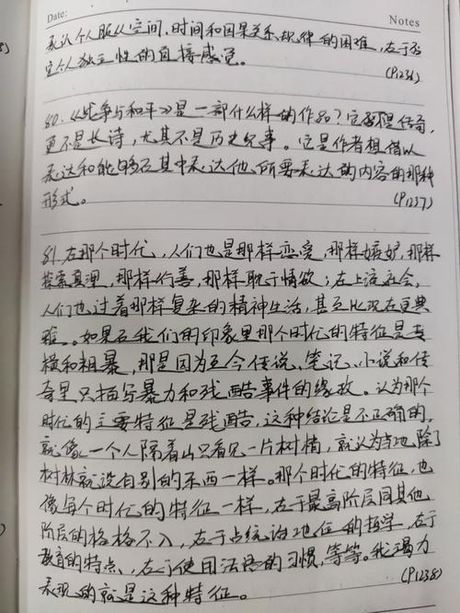 Date:
Notes
承认个人服从空间、时间和因果关系规律的困难，在于否
定个人独立性的直接感觉。
(P1236)
80.《战争与和平》是一部什么样的作品？它不是传奇，
更不是长诗，尤其不是历史纪事。它是作者想借以
表达和能够在其中表达他所要表达的内容的那种
形式。
(P1237)
81. 在那个时代，人们也是那样恋爱，那样嫉妒，那样
探索真理，那样行善，那样耽于情欲；在上流社会，
人们也过着那样复杂的精神生活，甚至比现在更典
雅。如果在我们的印象里那个时代的特征是专
横和粗暴，那是因为至今传说、笔记、小说和传
奇里只描写暴力和残酷事件的缘故。认为那个
时代的主要特征是残酷，这种结论是不正确的，
就像一个人隔着山只看见一片树梢，就认为当地除了
树林就没有别的东西一样。那个时代的特征，也
像每个时代的特征一样，在于最高阶层同其他
阶层的格格不入，在于占统治地位的哲学，在于
教育的特点，在于使用法语的习惯，等等。我竭力
表现的就是这种特征。
(P1238)